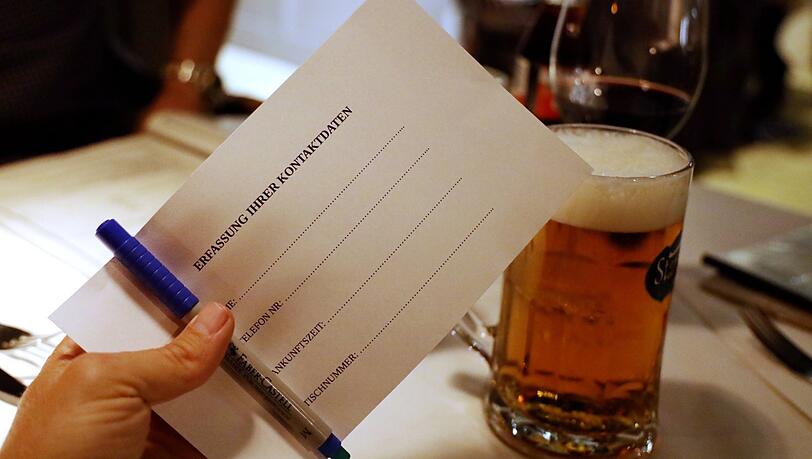 ERFASSUNG IHRER KONTAKTDATEN
ME:
ELEFON NR:
ANKUNFTSZEIT:
TISCHNUMMER:
FABER-CASTELL